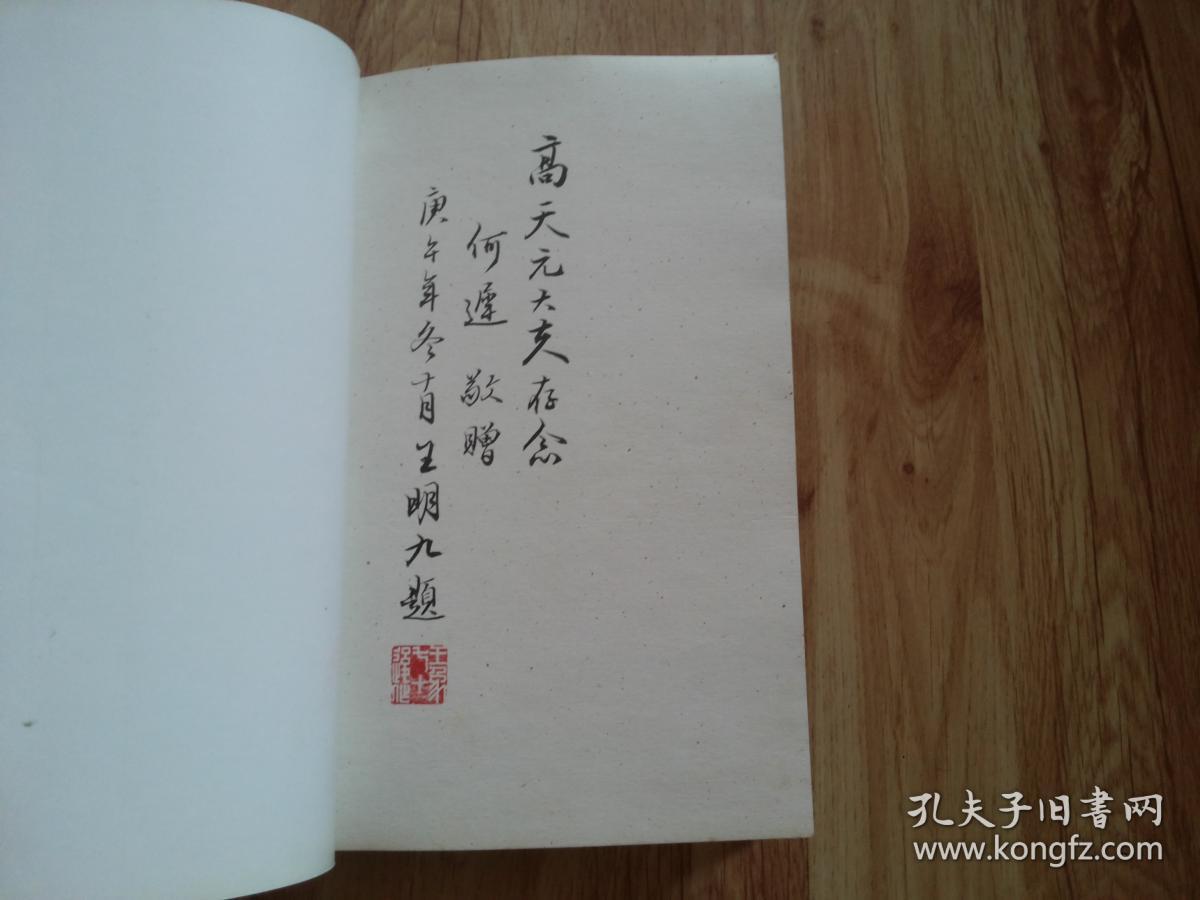 高天元大夫存念
何遲 敬贈
庚午年冬十月王明九題
孔夫子旧书网
www.kongfz.com